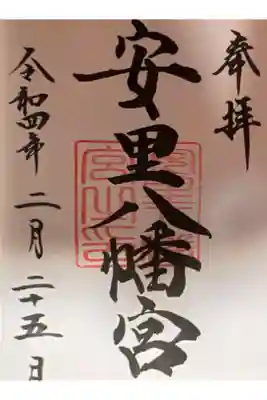 奉拝
安里八幡宮
令和四年二月二十五日